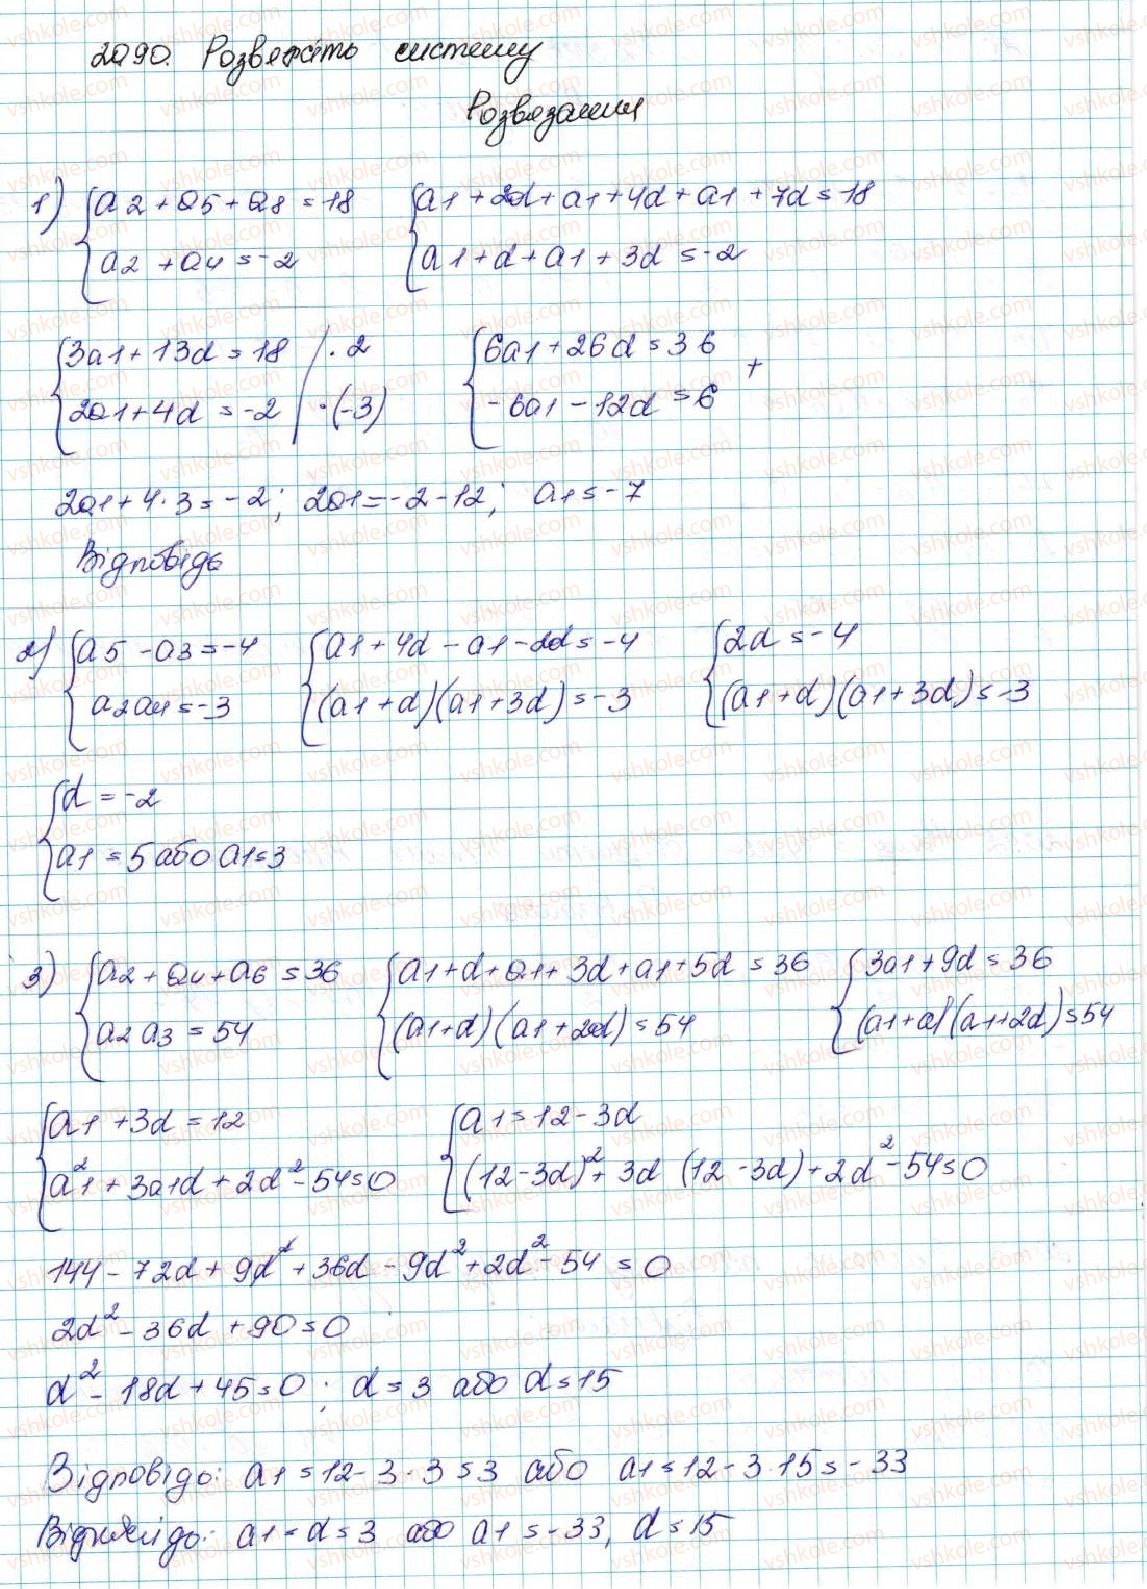 2090. Розв'яжіть систему
Розв'язання
1) { a2 + a5 + a8 = 18 { a1 + 2d + a1 + 4d + a1 + 7d = 18
a2 + a4 = -2 a1 + d + a1 + 3d = -2
{ 3a1 + 13d = 18 | · 2 { 6a1 + 26d = 36 +
2a1 + 4d = -2 | · (-3) -6a1 - 12d = 6
2a1 + 4 · 3 = -2; 2a1 = -2 - 12; a1 = -7
Відповідь
2) { a5 - a3 = -4 { a1 + 4d - a1 - 2d = -4 { 2d = -4
a2a4 = -3 (a1 + d)(a1 + 3d) = -3 (a1 + d)(a1 + 3d) = -3
{ d = -2
a1 = 5 або a1 = 3
3) { a2 + a4 + a6 = 36 { a1 + d + a1 + 3d + a1 + 5d = 36 { 3a1 + 9d = 36
a2 a3 = 54 (a1 + d)(a1 + 2d) = 54 (a1 + d)(a1 + 2d) = 54
{ a1 + 3d = 12 { a1 = 12 - 3d
a1² + 3a1d + 2d² - 54 = 0 (12 - 3d)² + 3d (12 - 3d) + 2d² - 54 = 0
144 - 72d + 9d² + 36d - 9d² + 2d² - 54 = 0
2d² - 36d + 90 = 0
d² - 18d + 45 = 0; d = 3 або d = 15
Відповідь: a1 = 12 - 3 · 3 = 3 або a1 = 12 - 3 · 15 = -33
Відповідь: a1 = d = 3 або a1 = -33, d = 15
vshkole.com